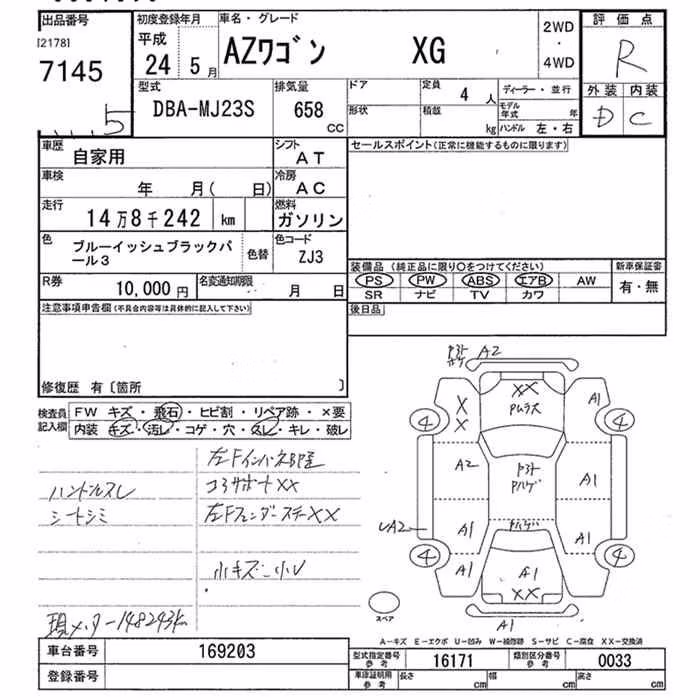 出品番号 初度登録年月 車名・グレード 評価点
[2178] 平成 2WD
7145 24 5月 AZワゴン XG ・ R
4WD
5 型式 排気量 ドア 定員 4人 ディーラー・並行 外装 内装
DBA-MJ23S 658 cc 形状 積載 kg モデル年式 年 D C
ハンドル 左・右
車歴 自家用 シフト AT セールスポイント(正常に機能するものに限ります)
車検 年 月( 日) 冷房 AC
走行 14万8千242 km 燃料 ガソリン
色 ブルーイッシュブラックパ 色替 色コード
ール3 ZJ3
装備品 (純正品に限り○をつけてください) 新車保証書
R券 10,000円 名変通知期限 月 日 PS PW ABS エアB AW 有・無
SR ナビ TV カワ
注意事項申告欄(不具合内容等は具体的に記入して下さい) 後日品
修復歴 有〔箇所 〕
検査員 FW キズ・飛石・ヒビ割・リペア跡・×要
記入欄 内装 キズ・汚レ・コゲ・穴・スレ・キレ・破レ
左Fインパネ部
ハンドルスレ コアサポートXX
シートシミ 左FフェンダーステーXX
小キズ 小U
現メーター148243k
A2
XX
Pムラ大 A1
X
X
4 4
A2 Pハゲ A1
Pハゲ
UA2 A1 A1
4 4
A1 A1 A1
XX
スペア
A1
A-キズ E-エクボ U-凹み W-補修跡 S-サビ C-腐食 XX-交換済
車台番号 169203 型式指定番号 参考 16171 類別区分番号 参考 0033
登録番号 車庫証明用 参考 長さ cm 幅 cm 高さ cm